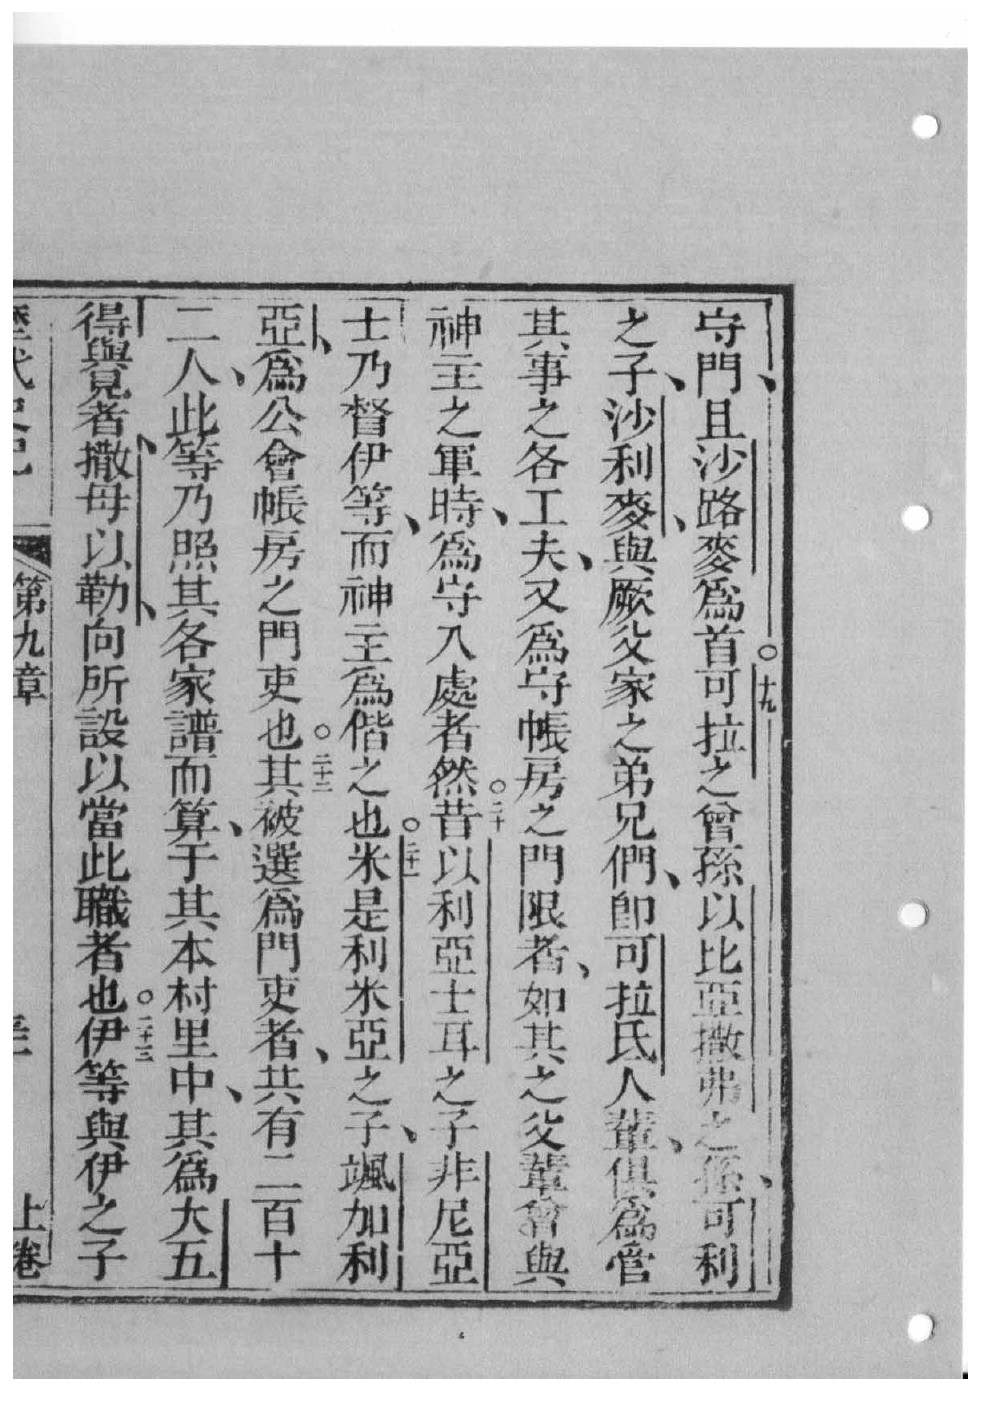 守門、且沙路麥爲首○十九可拉之曾孫以比亞撒弗之孫、可利
之子、沙利麥、與厥父家之弟兄們、卽可拉氏人輩、俱爲管
其事之各工夫、又爲守帳房之門限者、如其之父輩曾與
神主之軍時、爲守入處者然○二十昔以利亞士耳之子非尼亞
士乃督伊等、而神主爲偕之也○二十一米是利米亞之子、颯加利
亞、爲公會帳房之門吏也○二十二其被選爲門吏者、共有二百十
二人、此等乃照其各家譜而算、于其本村里中、其爲大五
得與見者、撒母以勒、向所設以當此職者也○二十三伊等與伊之子
歷代史記 第九章 上卷